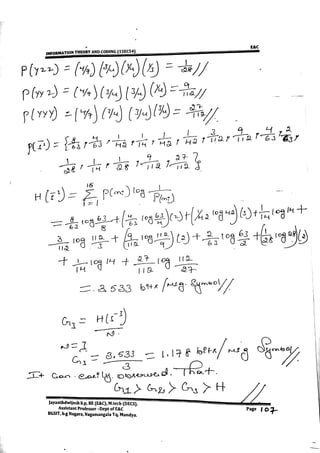 E&C
INFORMATION THEORY AND CODING (15EC54)
P(YZZ) = (4/9) (3/4) (1/4) (1/3) = 1/28 //
P(YYZ) = (4/9) (3/4) (3/4) (1/4) = 9/112 //
P(YYY) = (4/9) (3/4) (3/4) (3/4) = 27/112 //
1/28, 1/14, 1/28, 9/112, 27/112 }
H(s̄³) = 18 Σ i=1 P(mi) log 1/P(mi)
= 8/63 log 63/8 + (4/63 log 63/4)(2) + (1/42 log 42)(3) + 1/14 log 14 +
3/112 log 112/3 + (9/112 log 112/9)(2) + 2/63 log 63/2 + (1/28 log 28)(2)
+ 1/14 log 14 + 27/112 log 112/27
= 3.533 bits/Meg. Symbol //
G3 = H(s̄³)
N
N=3
G3 = 3.533 / 3 = 1.178 bits/ Meg Symbol
It can easily observed. That.
G1 > G2 > G3 > H //
Jayanthdwijesh h p, BE (E&C), M.tech (DECS).
Assistant Professor –Dept of E&C
BGSIT, b g Nagara, Nagamangala Tq, Mandya.
Page 107